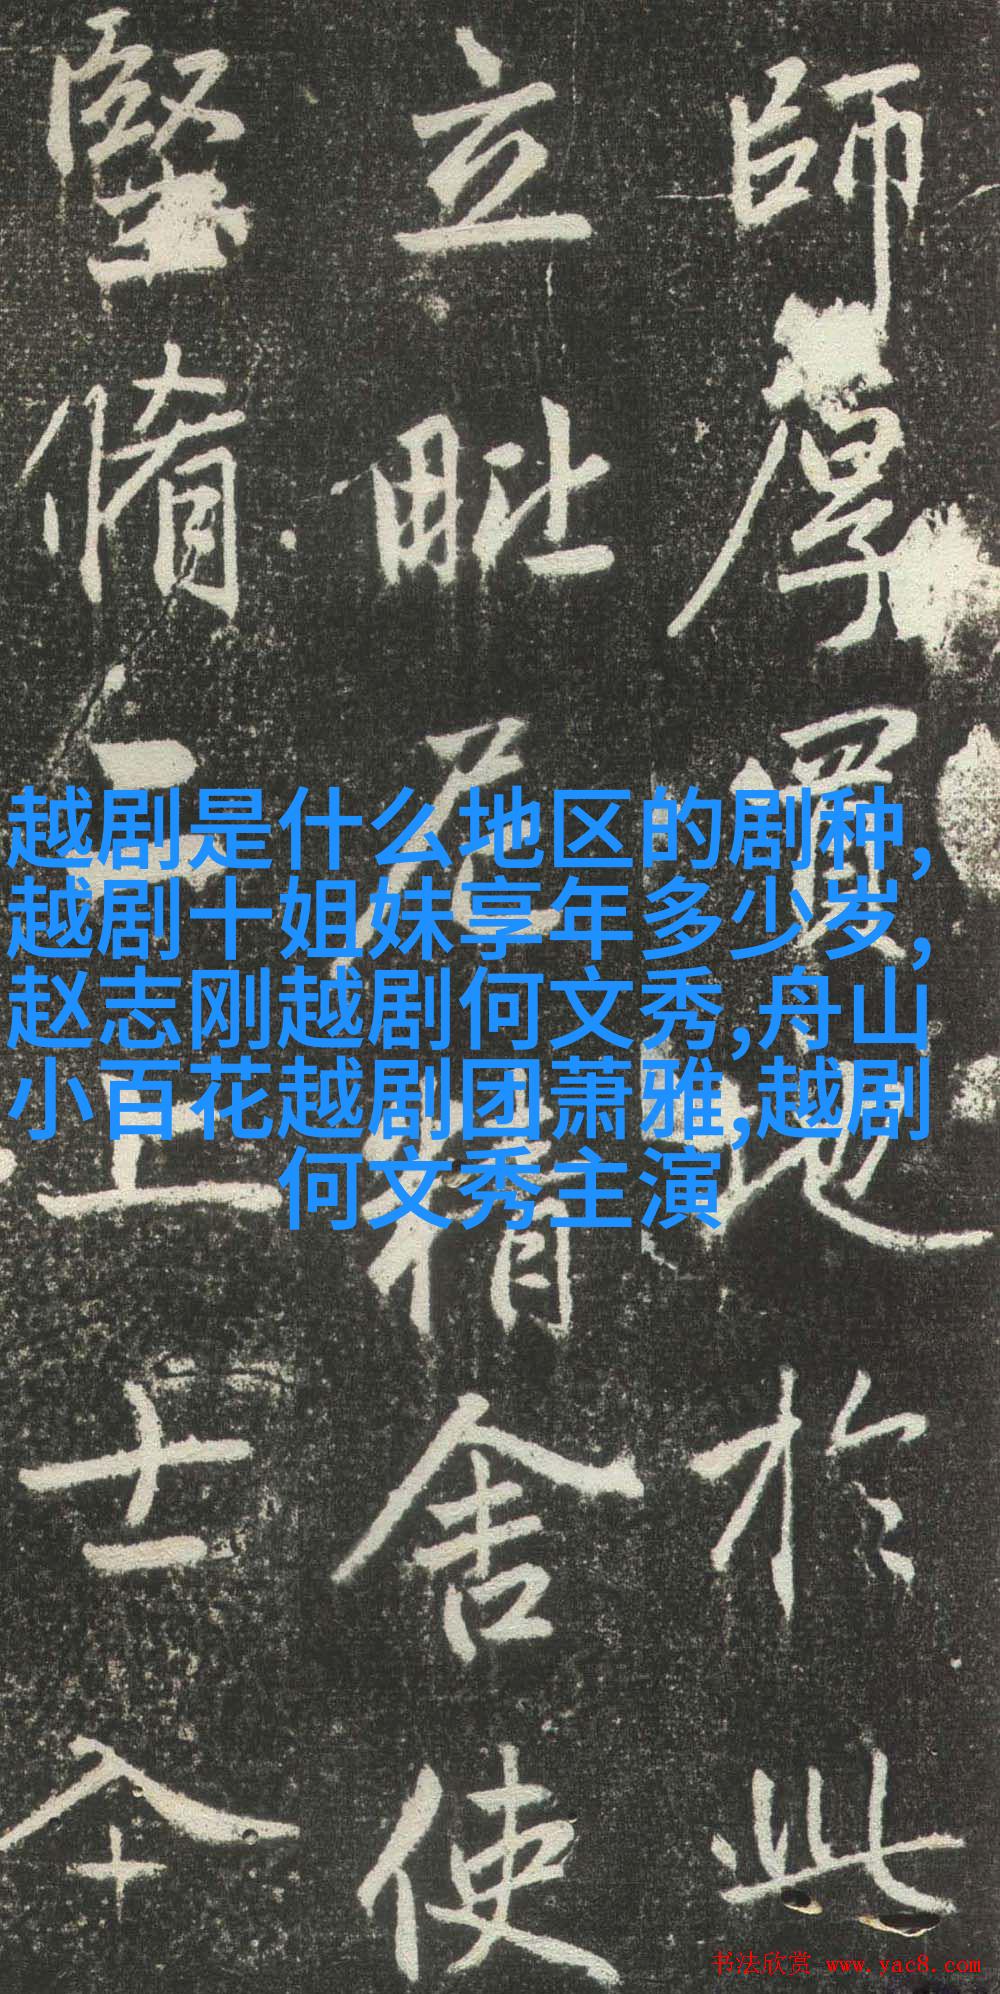 越剧是什么地区的剧种,
越剧十姐妹享年多少岁,
赵志刚越剧何文秀,舟山
小百花越剧团萧雅,越剧
何文秀主演
師厚買地於此
立毗尼精舍使
堅脩上士
书法欣赏 www.yac8.com